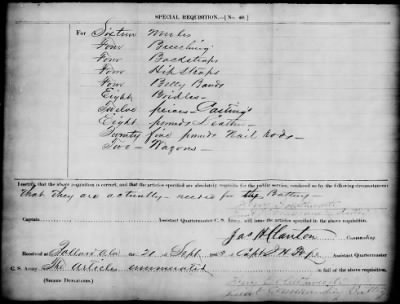 SPECIAL REQUISITION.—[No. 40.]
For Sixteen Mules
Four Breeching
Four Backstraps
Four Hip Straps
Four Belly Bands
Eight Bridles—
Twelve pieces Casting
Eight pounds Leather—
Twenty five pounds Nail rods—
Two Wagons—
I certify that the above requisition is correct, and that the articles specified are absolutely requisite for the public service, rendered so by the following circumstances:
that they are actually needed for my Battery
Captain Assistant Quartermaster C. S. Army, will issue the articles specified in the above requisition.
Jas H Clanton Commanding
Received at on 20 Sept of Capt Assistant Quartermaster
C. S. Army, The Articles enumerated in full of the above requisition.
(SIGNED DUPLICATES.)